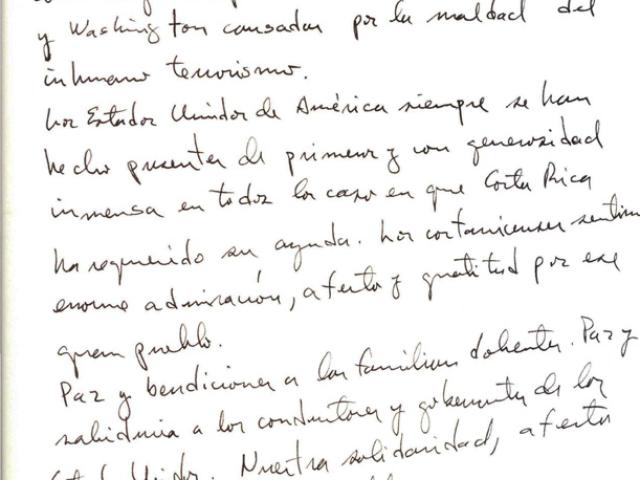 y Washington causadas por la maldad del
inhumano terrorismo.
Los Estados Unidos de América siempre se han
hecho presentes de primeros y con generosidad
inmensa en todos los casos en que Costa Rica
ha requerido su ayuda. Los costarricenses sentimos
enorme admiración, afecto y gratitud por ese
gran pueblo.
Paz y bendiciones a las familias dolientes. Paz y
sabiduría a los conductores y gobernantes de los
Estados Unidos. Nuestra solidaridad, afecto